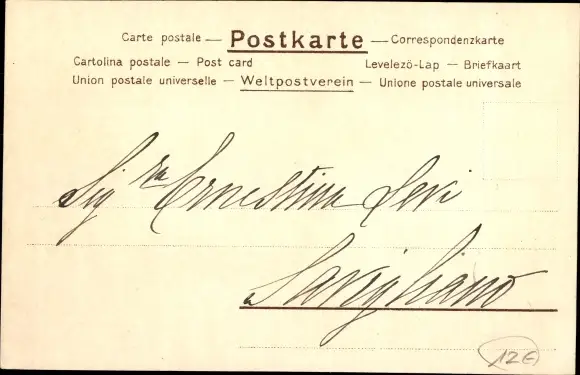 Carte postale — Postkarte — Correspondenzkarte
Cartolina postale — Post card Levelezö-Lap — Briefkaart
Union postale universelle — Weltpostverein — Unione postale universale
Sig.ra Ernestina Levi
a Savigliano
12€